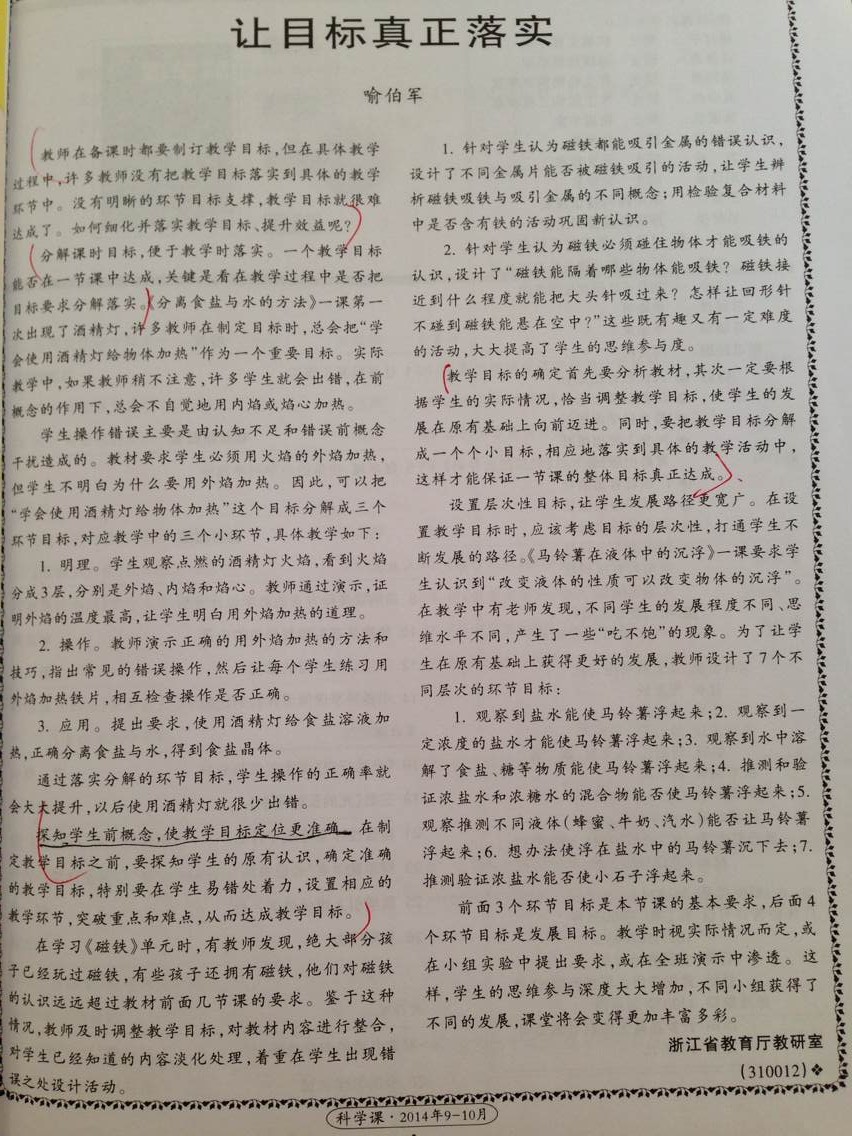 让目标真正落实
喻伯军
教师在备课时都要制订教学目标,但在具体教学
过程中,许多教师没有把教学目标落实到具体的教学
环节中。没有明晰的环节目标支撑,教学目标就很难
达成了。如何细化并落实教学目标、提升效益呢?
分解课时目标,便于教学时落实。一个教学目标
能否在一节课中达成,关键是看在教学过程中是否把
目标要求分解落实。《分离食盐与水的方法》一课第一
次出现了酒精灯,许多教师在制定目标时,总会把“学
会使用酒精灯给物体加热”作为一个重要目标。实际
教学中,如果教师稍不注意,许多学生就会出错,在前
概念的作用下,总会不自觉地用内焰或焰心加热。
学生操作错误主要是由认知不足和错误前概念
干扰造成的。教材要求学生必须用火焰的外焰加热,
但学生不明白为什么要用外焰加热。因此,可以把
“学会使用酒精灯给物体加热”这个目标分解成三个
环节目标,对应教学中的三个小环节,具体教学如下:
1. 明理。学生观察点燃的酒精灯火焰,看到火焰
分成3层,分别是外焰、内焰和焰心。教师通过演示,证
明外焰的温度最高,让学生明白用外焰加热的道理。
2. 操作。教师演示正确的用外焰加热的方法和
技巧,指出常见的错误操作,然后让每个学生练习用
外焰加热铁片,相互检查操作是否正确。
3. 应用。提出要求,使用酒精灯给食盐溶液加
热,正确分离食盐与水,得到食盐晶体。
通过落实分解的环节目标,学生操作的正确率就
会大大提升,以后使用酒精灯就很少出错。
探知学生前概念,使教学目标定位更准确。在制
定教学目标之前,要探知学生的原有认识,确定准确
的教学目标,特别要在学生易错处着力,设置相应的
教学环节,突破重点和难点,从而达成教学目标。
在学习《磁铁》单元时,有教师发现,绝大部分孩
子已经玩过磁铁,有些孩子还拥有磁铁,他们对磁铁
的认识远远超过教材前面几节课的要求。鉴于这种
情况,教师及时调整教学目标,对教材内容进行整合,
对学生已经知道的内容淡化处理,着重在学生出现错
误之处设计活动。
1. 针对学生认为磁铁都能吸引金属的错误认识,
设计了不同金属片能否被磁铁吸引的活动,让学生辨
析磁铁吸铁与吸引金属的不同概念;用检验复合材料
中是否含有铁的活动巩固新认识。
2. 针对学生认为磁铁必须碰住物体才能吸铁的
认识,设计了“磁铁能隔着哪些物体能吸铁?磁铁接
近到什么程度就能把大头针吸过来?怎样让回形针
不碰到磁铁能悬在空中?”这些既有趣又有一定难度
的活动,大大提高了学生的思维参与度。
教学目标的确定首先要分析教材,其次一定要根
据学生的实际情况,恰当调整教学目标,使学生的发
展在原有基础上向前迈进。同时,要把教学目标分解
成一个个小目标,相应地落实到具体的教学活动中,
这样才能保证一节课的整体目标真正达成。
设置层次性目标,让学生发展路径更宽广。在设
置教学目标时,应该考虑目标的层次性,打通学生不
断发展的路径。《马铃薯在液体中的沉浮》一课要求学
生认识到“改变液体的性质可以改变物体的沉浮”。
在教学中有老师发现,不同学生的发展程度不同、思
维水平不同,产生了一些“吃不饱”的现象。为了让学
生在原有基础上获得更好的发展,教师设计了7个不
同层次的环节目标:
1. 观察到盐水能使马铃薯浮起来;2. 观察到一
定浓度的盐水才能使马铃薯浮起来;3. 观察到水中溶
解了食盐、糖等物质能使马铃薯浮起来;4. 推测和验
证浓盐水和浓糖水的混合物能否使马铃薯浮起来;5.
观察推测不同液体(蜂蜜、牛奶、汽水)能否让马铃薯
浮起来;6. 想办法使浮在盐水中的马铃薯沉下去;7.
推测验证浓盐水能否使小石子浮起来。
前面3个环节目标是本节课的基本要求,后面4
个环节目标是发展目标。教学时视实际情况而定,或
在小组实验中提出要求,或在全班演示中渗透。这
样,学生的思维参与深度大大增加,不同小组获得了
不同的发展,课堂将会变得更加丰富多彩。
浙江省教育厅教研室
(310012)❖
科学课·2014年9-10月